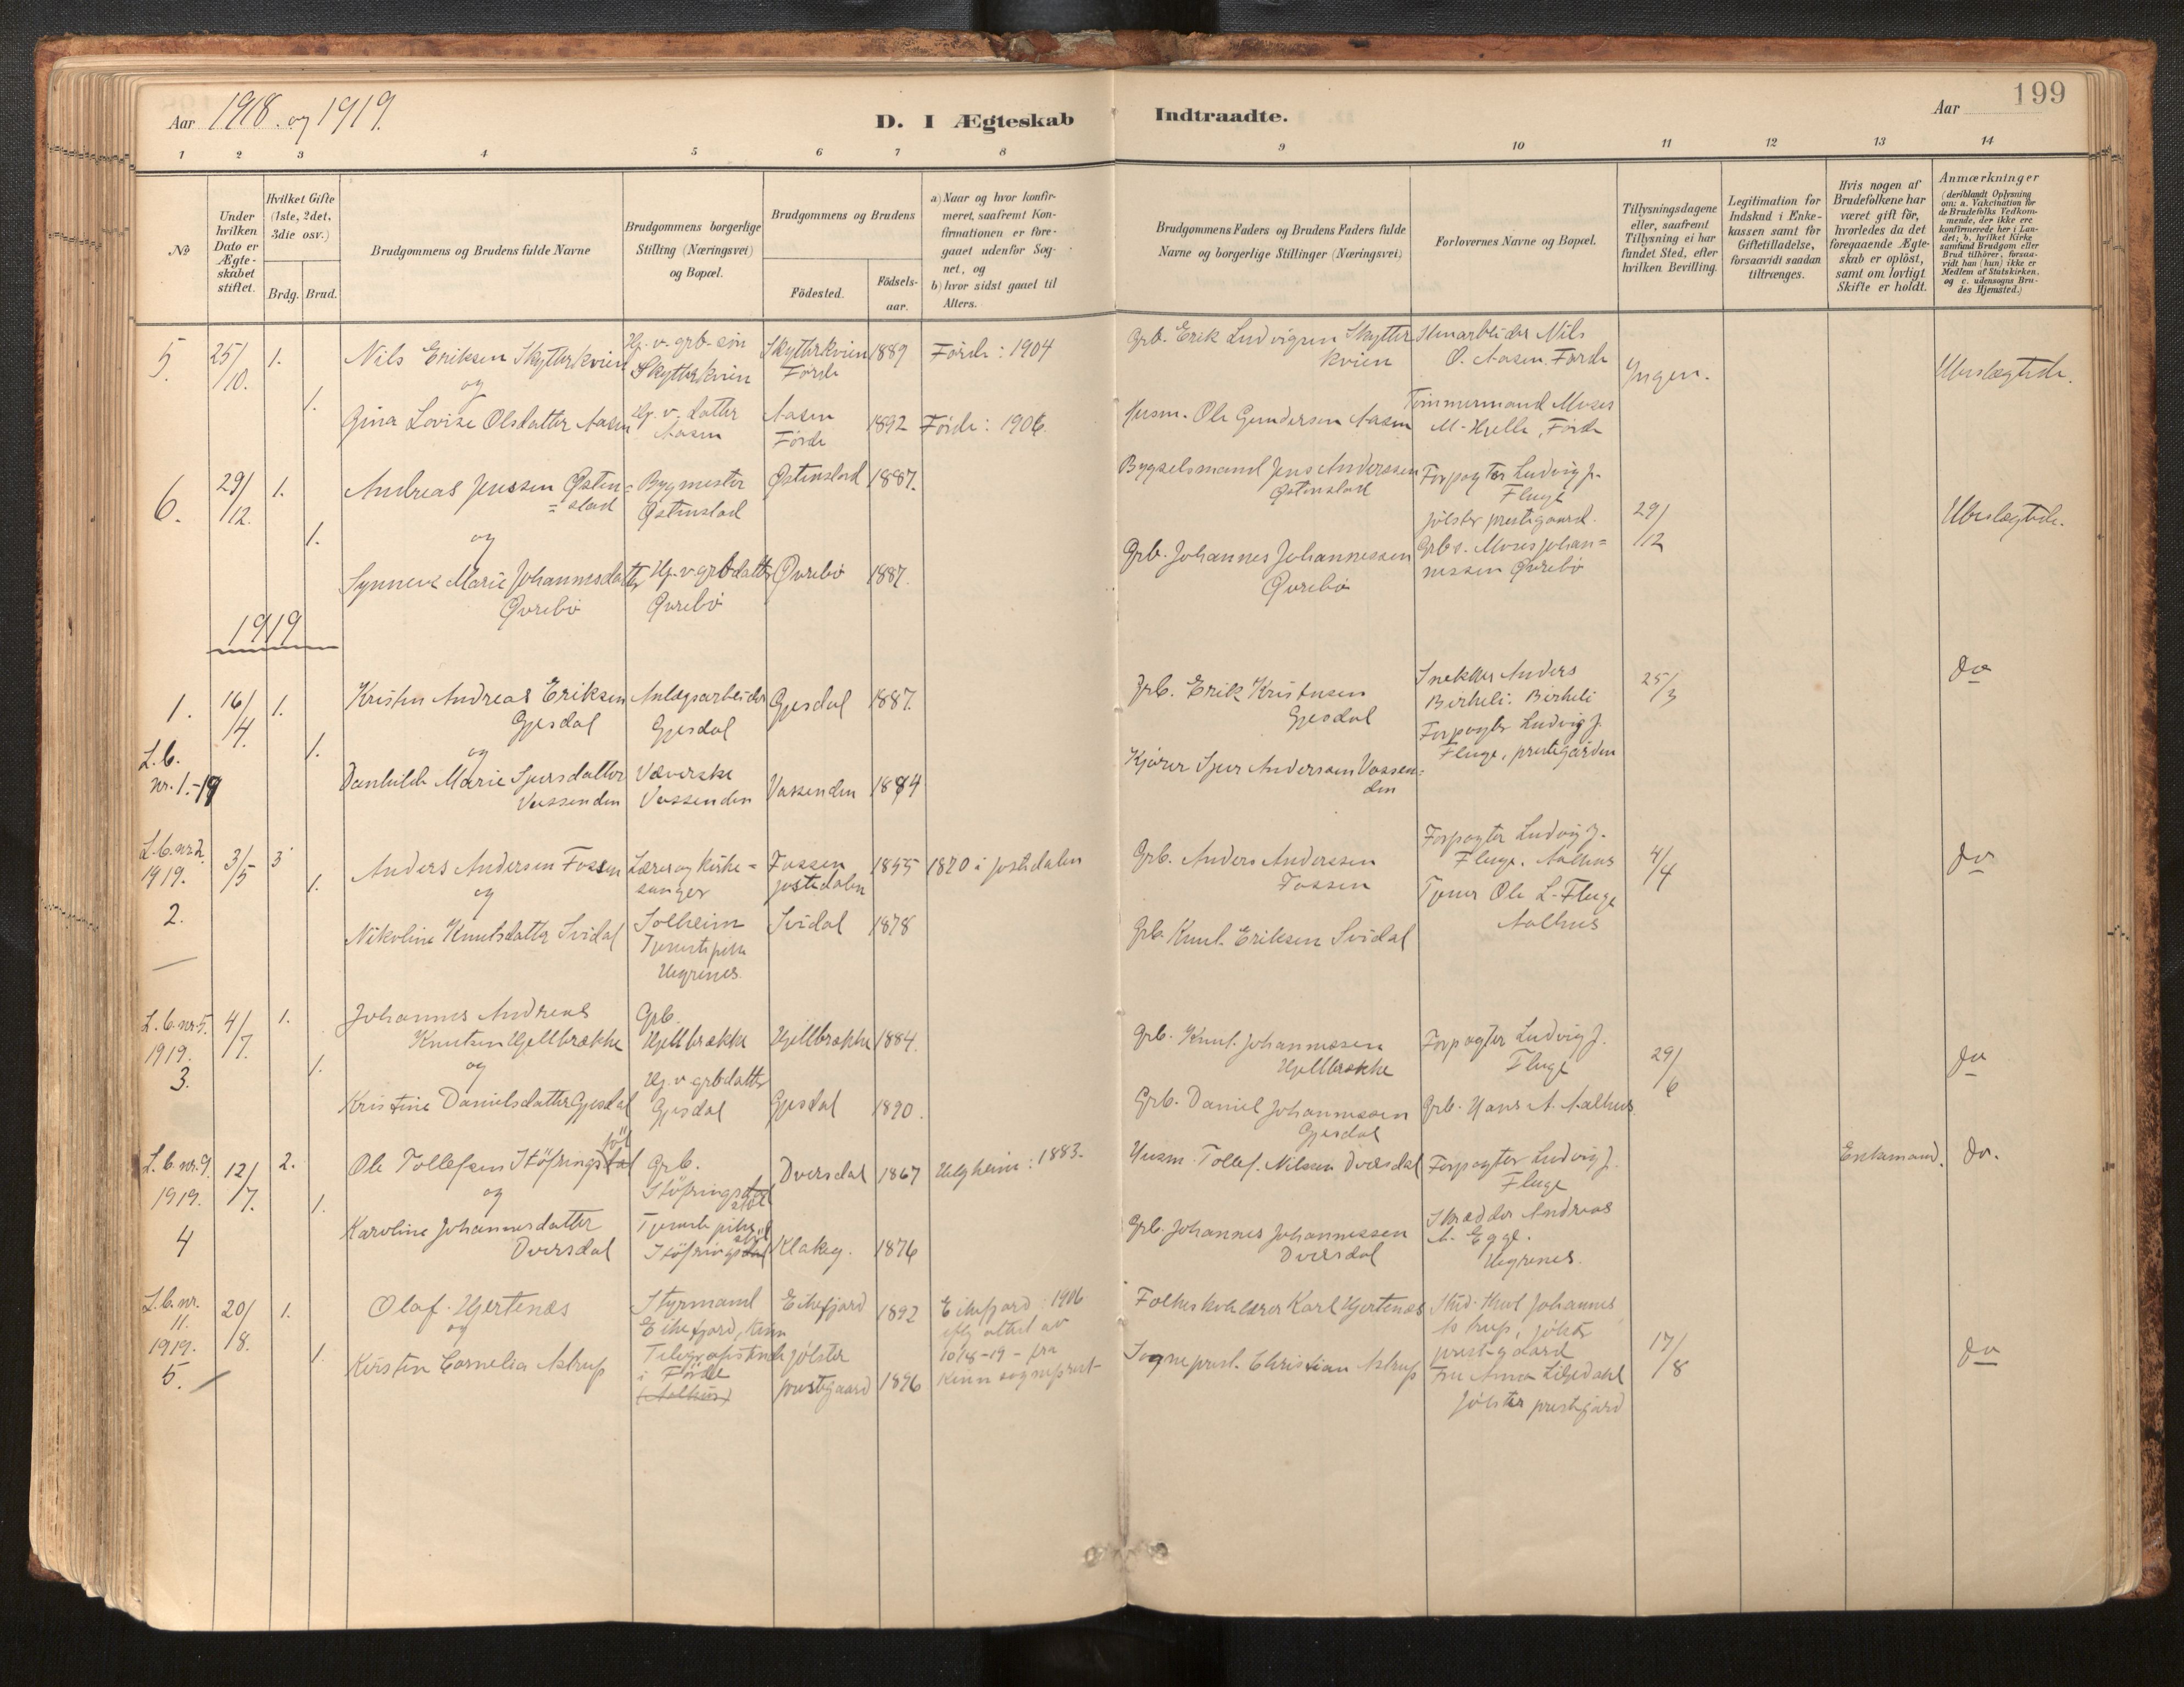 Aar 1918. og 1919.
D. I Ægteskab Indtraadte.
Aar
199
1 2 3 4 5 6 7 8 9 10 11 12 13 14
№
Under hvilken Dato er Ægteskabet stiftet.
Hvilket Gifte (1ste, 2det, 3die osv.)
Brdg. Brud.
Brudgommens og Brudens fulde Navne
Brudgommens borgerlige Stilling (Næringsvei) og Bopæl.
Brudgommens og Brudens
Födested.
Födselsaar.
a) Naar og hvor konfirmeret, saafremt Konfirmationen er foregaaet udenfor Sognet, og
b) hvor sidst gaaet til Alters.
Brudgommens Faders og Brudens Faders fulde Navne og borgerlige Stillinger (Næringsvei)
Forlovernes Navne og Bopæl.
Tillysningsdagene eller, saafremt Tillysning ei har fundet Sted, efter hvilken Bevilling.
Legitimation for Indskud i Enkekassen samt for Giftetilladelse, forsaavidt saadan tiltrænges.
Hvis nogen af Brudefolkene har været gift för, hvorledes da det foregaaende Ægteskab er oplöst, samt om lovligt Skifte er holdt.
Anmærkninger
(deriblandt Oplysning om: a. Vakcination for de Brudefolks Vedkommende, der ikke ere konfirmerede her i Landet; b. hvilket Kirkesamfund Brudgom eller Brud tilhörer, forsaavidt han (hun) ikke er Medlem af Statskirken, og c. udensogns Brudes Hjemsted.)
5. 25/10. 1. Nils Eriksen Skytterkvien
Hj. v. grb. sön Skytterkvien
Skytterkvien Förde 1889 Förde: 1904
Grb. Erik Ludvigsen Skytterkvien
Stenarbeider Nils O. Aasen. Förde
Yngen.
Ubeslægtede.
og
1. Gina Lovise Olsdatter Aasen
Hj. v. datter Aasen
Aasen Förde 1892 Förde: 1906.
Husm. Ole Gundersen Aasen
Tömmermand Moses M. Hjelle, Förde
6. 29/12. 1. Andreas Jenssen Östen=
= stad
Bygmester Östenstad
Östenstad 1887.
Bygselsmand Jens Anderssen Östenstad
Forpagter Ludvig J. Fluge
Jölster prestegaard.
29/12
Ubeslægtede.
og
1. Synneve Marie Johannesdatter Övrebö
Hj. v. grbdatter Övrebö
Övrebö 1887.
Grb. Johannes Johannessen Övrebö
Grbs. Moses Johan=
nessen Övrebö
1919
1. 16/4. 1. Kristen Andreas Eriksen Gjesdal
Anlægsarbeider Gjesdal
Gjesdal 1887.
Grb. Erik Kristensen Gjesdal
Snekker Anders Birkeli. Birkeli
25/3
do
L.b. nr. 1.-19
og
1. Danhilde Marie Sjursdatter Vassenden
Væverske Vassenden
Vassenden 1884
Kjörer Sjur Anderssen Vassen=
den
Forpagter Ludvig J. Fluge, prestegården
L.b. nr. 2. 1919. 2.
3/5 3 Anders Andersen Fossen
Lærer og kirke=
sanger Solheim
Fossen Jostedalen 1855 1870 i Jostedalen
Grb. Anders Anderssen Fossen
Forpagter Ludvig J. Fluge. Aalhus
4/4
do
og
1. Nikoline Knutsdatter Svidal
Tjenestepike Hegrenes.
Svidal 1878
Grb. Knut Eriksen Svidal
Tjener Ole L. Fluge Aalhus
L.b. nr. 5. 1919. 3.
4/7. 1. Johannes Andreas Knutsen Hjellbrække
Grb. Hjellbrække
Hjellbrække 1884.
Grb. Knut Johannessen Hjellbrække
Forpagter Ludvig J. Fluge
29/6
do
og
1. Kristine Danielsdatter Gjesdal
Hj. v. grbdatter Gjesdal
Gjesdal 1890.
Grb. Daniel Johannessen Gjesdal
Grb. Hans A. Aalhus
L.b. nr. 9. 1919. 4
12/7. 2. Ole Tollefsen Stöfringsdal
Grb. Stöfringsdal
Dversdal 1867 Helgheim: 1883.
Husm. Tollef. Nilssen Dversdal
Forpagter Ludvig J. Fluge
Enkemand.
do.
og
1. Karoline Johannesdatter Dversdal
Tjeneste pike Stöfringsdal
Klakeg. 1876
Grb. Johannes Johannessen Dversdal
Skrædder Andreas A. Egge. Hegrenes.
L.b. nr. 11. 1919. 5.
20/8. 1. Olaf Hjertenæs
Styrmand Eikefjord, Kinn
Eikefjord 1892
Eikefjord: 1906 iflg attest av 10/8-19 - fra Kinn sogneprest
Folkeskolelærer Karl Hjertenæs
Stud. theol Johannes Astrup, Jölster prestegaard
17/8
do
og
1. Kirsten Cornelia Astrup
Telegrafistinde i Förde (Aalhus)
Jölster prestegaard 1896
Sogneprest. Christian Astrup
Fru Anna Liljedahl Jölster prestegård